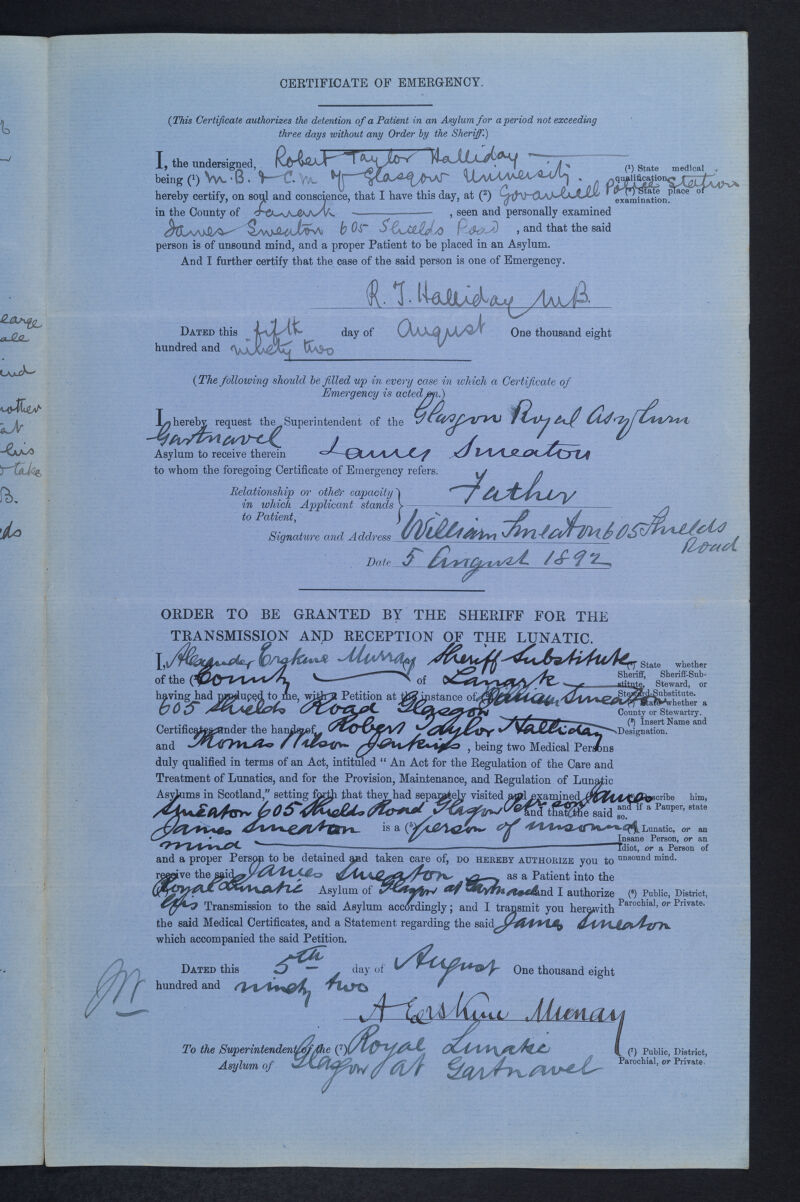 CERTIFICATE OF EMERGENCY.
(This Certificate authorizes the detention of a Patient in an Asylum for a period not exceeding
three days without any Order by the Sheriff.)
I, the undersigned, Robert Taylor Halliday
being (¹) M.B. & C.M of Glasgow University.
(¹) State medical
qualification.
hereby certify, on soul and conscience, that I have this day, at (²) Govanhill Police Station
(²) State place of
examination.
in the County of Lanark, seen and personally examined
James Smeaton 605 Shields Road, and that the said
person is of unsound mind, and a proper Patient to be placed in an Asylum.
And I further certify that the case of the said person is one of Emergency.
R. T. Halliday M.B.
DATED this fifth day of August One thousand eight
hundred and ninety two
(The following should be filled up in every case in which a Certificate of
Emergency is acted on.)
I hereby request the Superintendent of the Glasgow Royal Asylum
Gartnavel
Asylum to receive therein James Smeaton
to whom the foregoing Certificate of Emergency refers.
Relationship or other capacity
in which Applicant stands
to Patient,
Father
Signature and Address William Smeaton 605 Shields
Road
Date 5 August 1892
ORDER TO BE GRANTED BY THE SHERIFF FOR THE
TRANSMISSION AND RECEPTION OF THE LUNATIC.
I, Alexander Erskine Murray Sheriff Substitute
of the (County of Lanark
State whether
Sheriff, Sheriff-Sub-
stitute, Steward, or
Steward-Substitute.
having had produced to me, with a Petition at the instance of Smeaton
State whether a
County or Stewartry.
605 Shields Road Glasgow
Insert Name and
Designation.
Certificates under the hands of Robert Taylor Halliday
and Thomas Wilson Jenkins, being two Medical Persons
duly qualified in terms of an Act, intituled "An Act for the Regulation of the Care and
Treatment of Lunatics, and for the Provision, Maintenance, and Regulation of Lunatic
Asylums in Scotland," setting forth that they had separately visited and examined James
Describe him,
and if a Pauper, state
so.
Smeaton 605 Shields Road Glasgow and that the said
James Smeaton is a (person of unsound
mind
Lunatic, or an
Insane Person, or an
Idiot, or a Person of
unsound mind.
and a proper Person to be detained and taken care of, DO HEREBY AUTHORIZE you to
receive the said James Smeaton as a Patient into the
Royal Lunatic Asylum of Glasgow at Gartnavel and I authorize
(⁶) Public, District,
Parochial, or Private.
his Transmission to the said Asylum accordingly; and I transmit you herewith
the said Medical Certificates, and a Statement regarding the said James Smeaton
which accompanied the said Petition.
DATED this 5th day of August One thousand eight
hundred and ninety two
A Erskine Murray
To the Superintendent of the (⁷) Royal Lunatic
Asylum of Glasgow at Gartnavel
(⁷) Public, District,
Parochial, or Private.